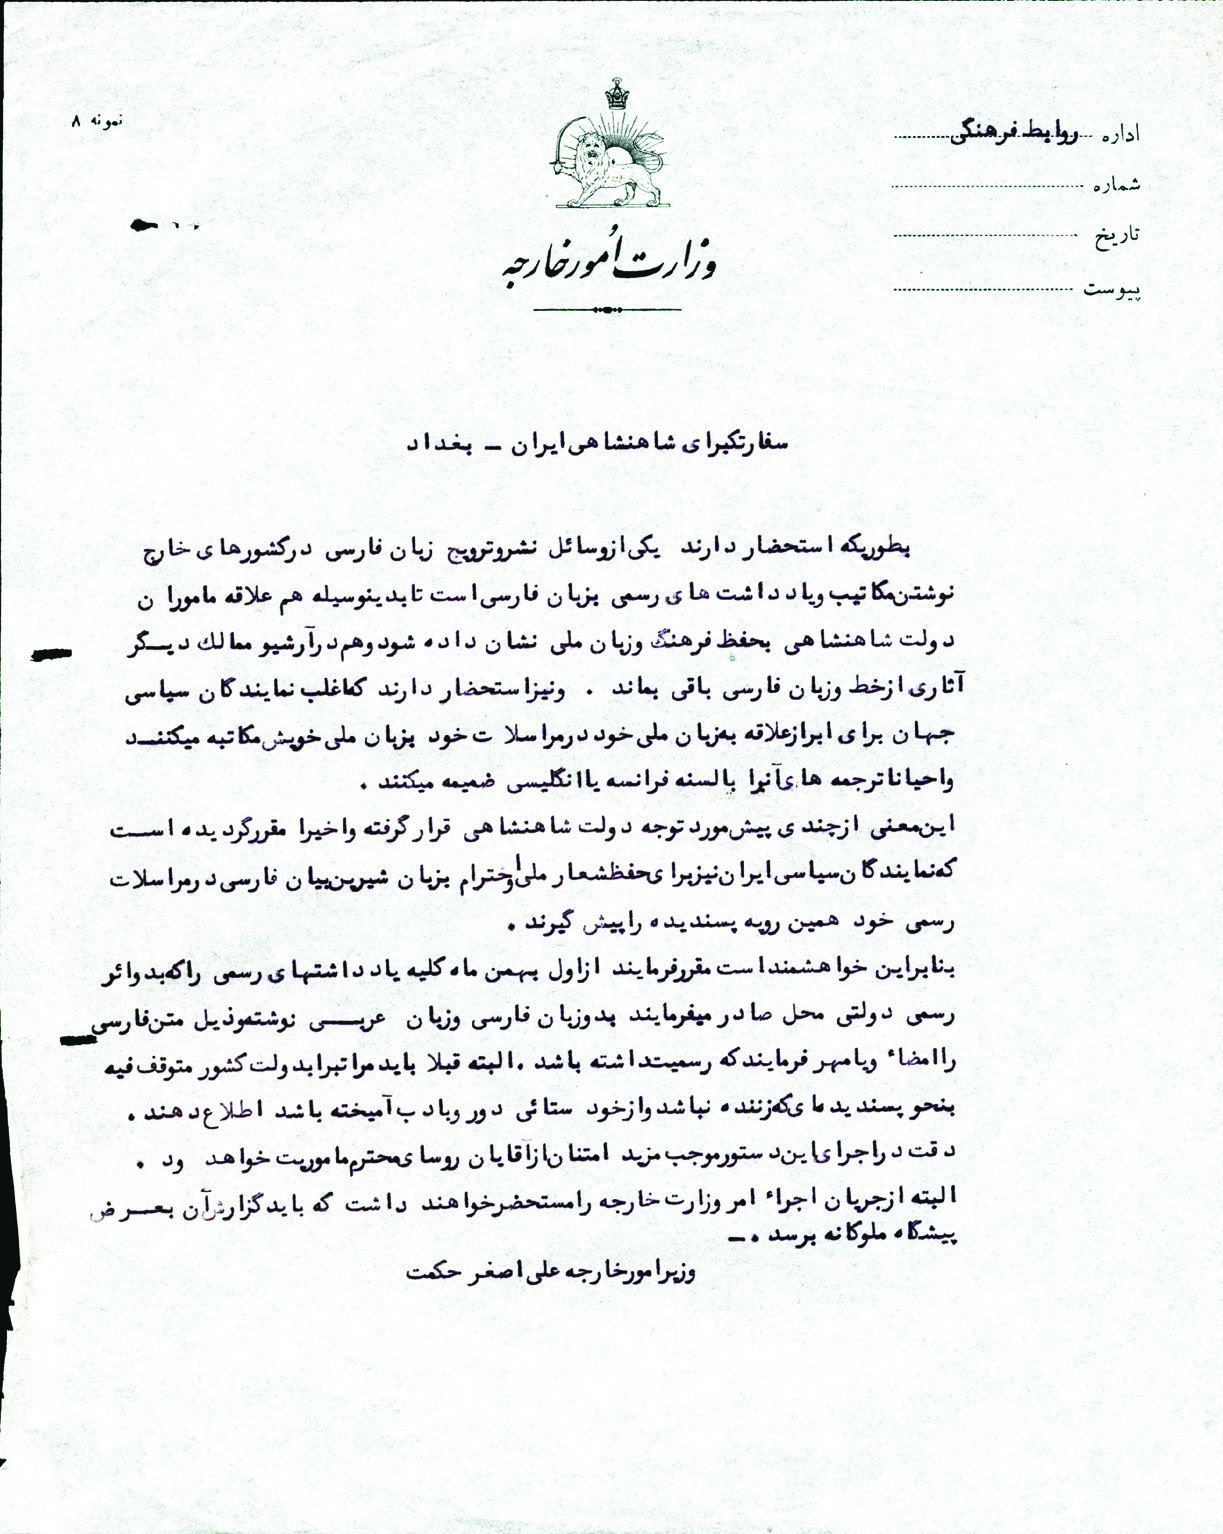 نمونه ۸
اداره روابط فرهنگی
شماره
تاریخ
پیوست
وزارت اُمور خارجه
سفارتکبرای شاهنشاهی ایران – بغداد
بطوریکه استحضار دارند یکی از وسائل نشر و ترویج زبان فارسی در کشورهای خارج
نوشتن مکاتیب و یادداشت های رسمی بزبان فارسی است تا بدینوسیله هم علاقه ماموران
دولت شاهنشاهی بحفظ فرهنگ و زبان ملی نشان داده شود و هم در آرشیو ممالك دیگر
آثاری از خط و زبان فارسی باقی بماند . و نیز استحضار دارند که اغلب نمایندگان سیاسی
جهان برای ابراز علاقه به زبان ملی خود در مراسلات خود بزبان ملی خویش مکاتبه میکنند
و احیانا ترجمه های آنرا بالسنه فرانسه یا انگلیسی ضمیمه میکنند .
این معنی از چندی پیش مورد توجه دولت شاهنشاهی قرار گرفته و اخیرا مقرر گردیده است
که نمایندگان سیاسی ایران نیز برای حفظ شعار ملی و احترام بزبان شیرین بیان فارسی در مراسلات
رسمی خود همین رویه پسندیده را پیش گیرند .
بنابراین خواهشمند است مقرر فرمایند از اول بهمن ماه کلیه یادداشتهای رسمی را که بدوائر
رسمی دولتی محل صادر میفرمایند بدو زبان فارسی و زبان عربی نوشته و ذیل متن فارسی
را امضاء و یا مهر فرمایند که رسمیت داشته باشد . البته قبلا باید مراتب را بدولت کشور متوقف فیه
بنحو پسندیده ای که زننده نباشد و از خود ستائی دور و بادب آمیخته باشد اطلاع دهند .
دقت در اجرای این دستور موجب مزید امتنان از آقایان روسای محترم ماموریت خواهد ود .
البته از جریان اجراء امر وزارت خارجه را مستحضر خواهند داشت که باید گزارش آن بعرض
پیشگاه ملوکانه برسد . –
وزیر امور خارجه علی اصغر حکمت